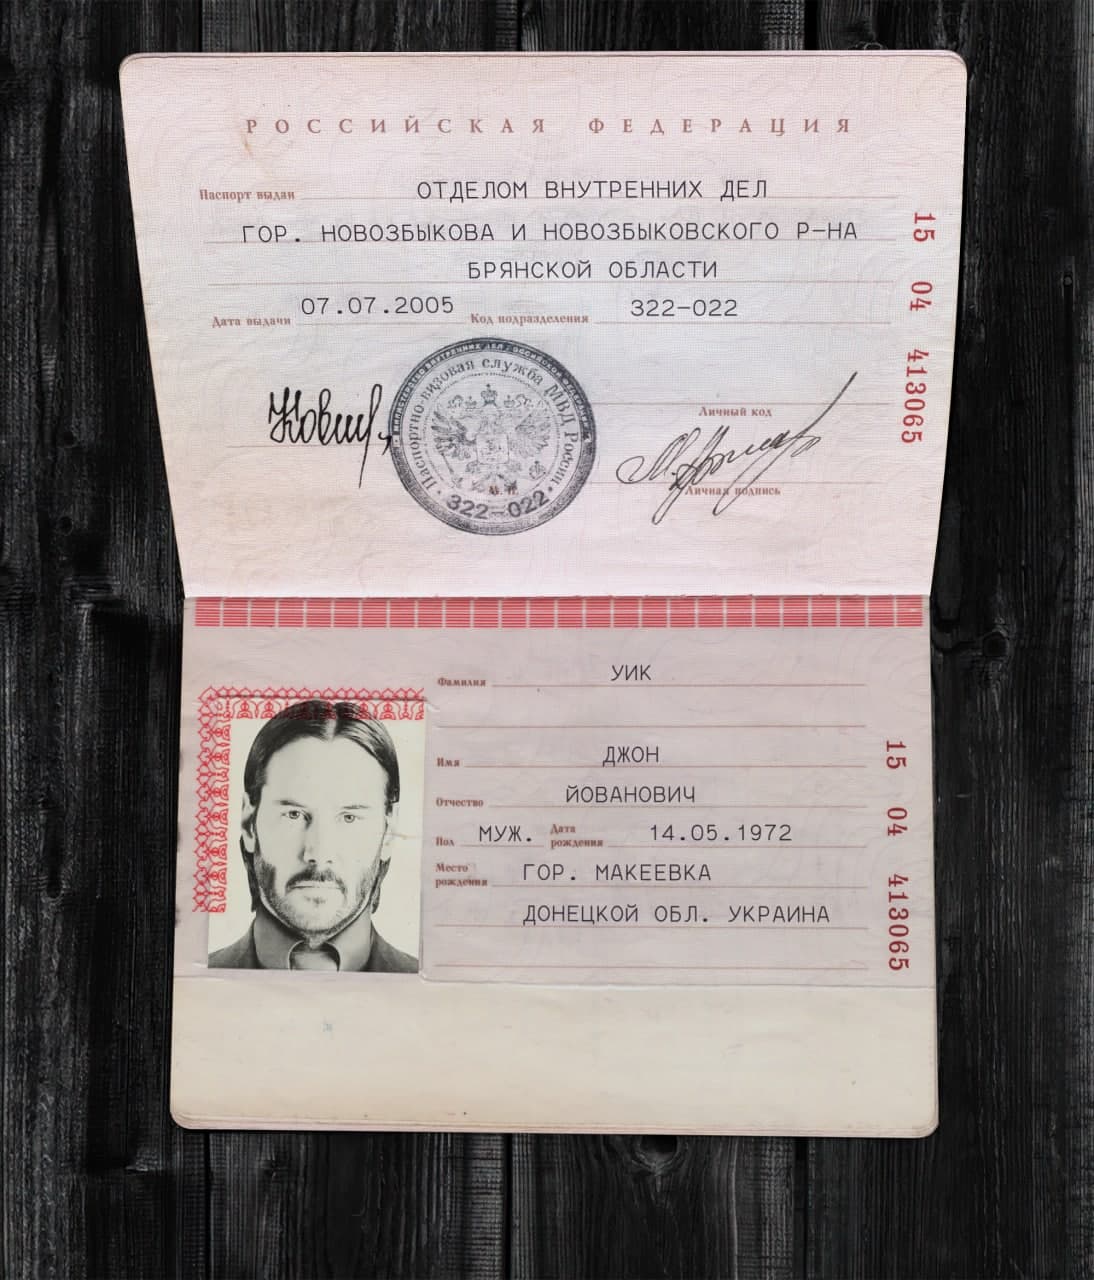 РОССИЙСКАЯ ФЕДЕРАЦИЯ
Паспорт выдан ОТДЕЛОМ ВНУТРЕННИХ ДЕЛ
ГОР. НОВОЗБЫКОВА И НОВОЗБЫКОВСКОГО Р-НА
БРЯНСКОЙ ОБЛАСТИ
Дата выдачи 07.07.2005 Код подразделения 322-022
15 04 413065
Паспортно-визовая служба МВД России
322-022
М. П.
Личный код
Личная подпись
Фамилия УИК
Имя ДЖОН
Отчество ЙОВАНОВИЧ
Пол МУЖ. Дата рождения 14.05.1972
Место рождения ГОР. МАКЕЕВКА
ДОНЕЦКОЙ ОБЛ. УКРАИНА
15 04 413065